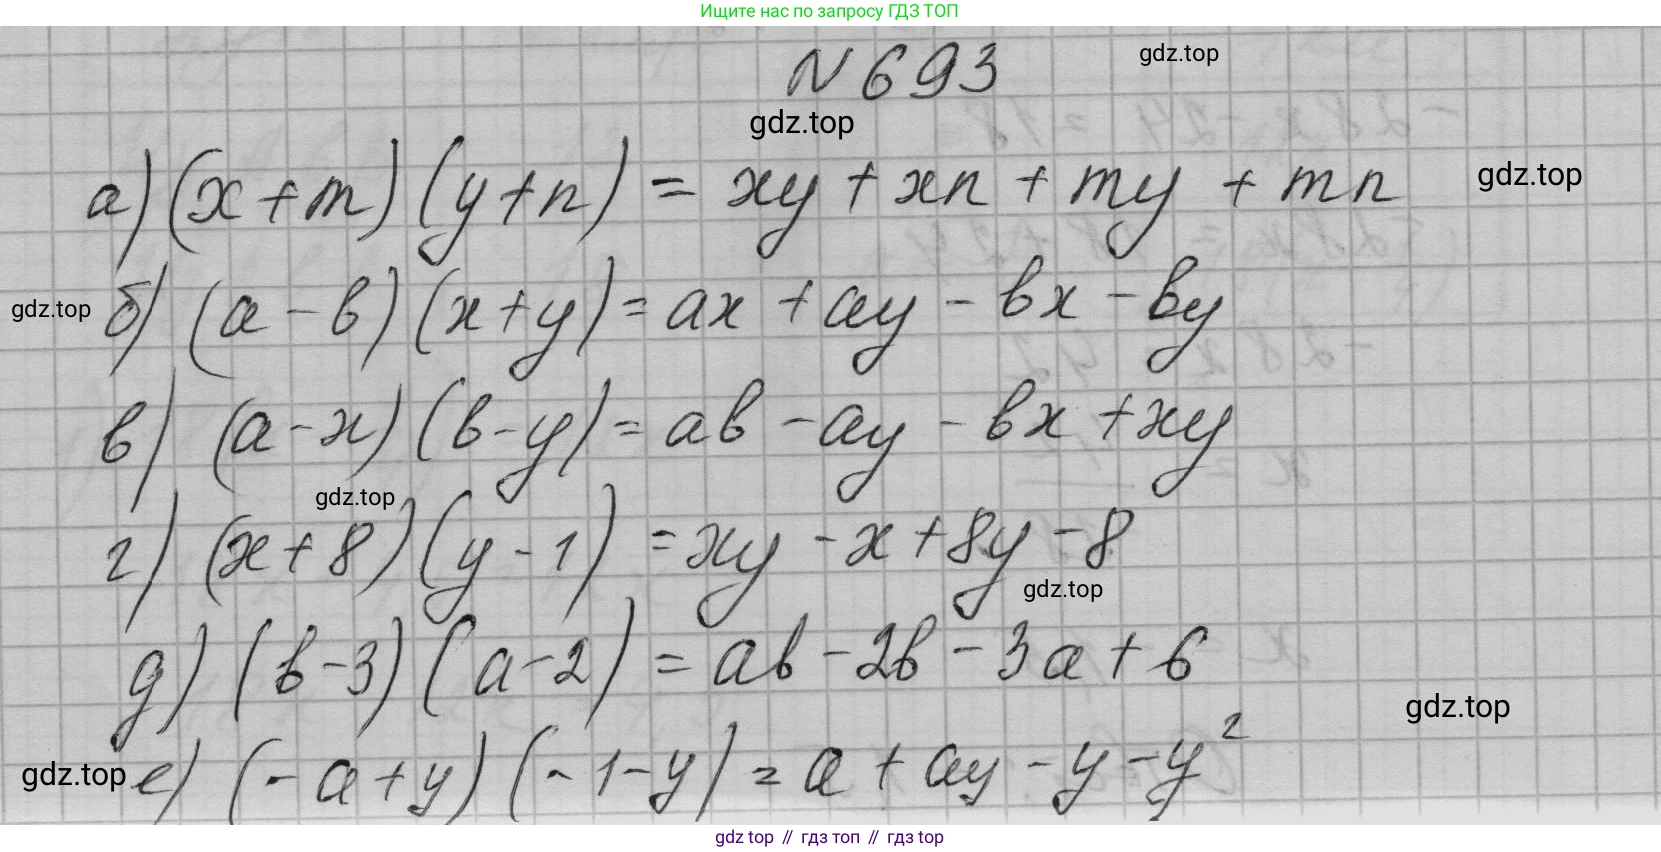 Ищите нас по запросу ГДЗ ТОП
N 693
gdz.top
gdz.top
а) (x+m) (y+n) = xy + xn + my + mn
gdz.top
gdz.top
б) (a-b) (x+y) = ax + ay - bx - by
в) (a-x) (b-y) = ab - ay - bx + xy
gdz.top
г) (x+8) (y-1) = xy - x + 8y - 8
gdz.top
д) (b-3) (a-2) = ab - 2b - 3a + 6
gdz.top
gdz.top
е) (-a+y) (-1-y) = a + ay - y - y²
gdz top // гдз топ // гдз top